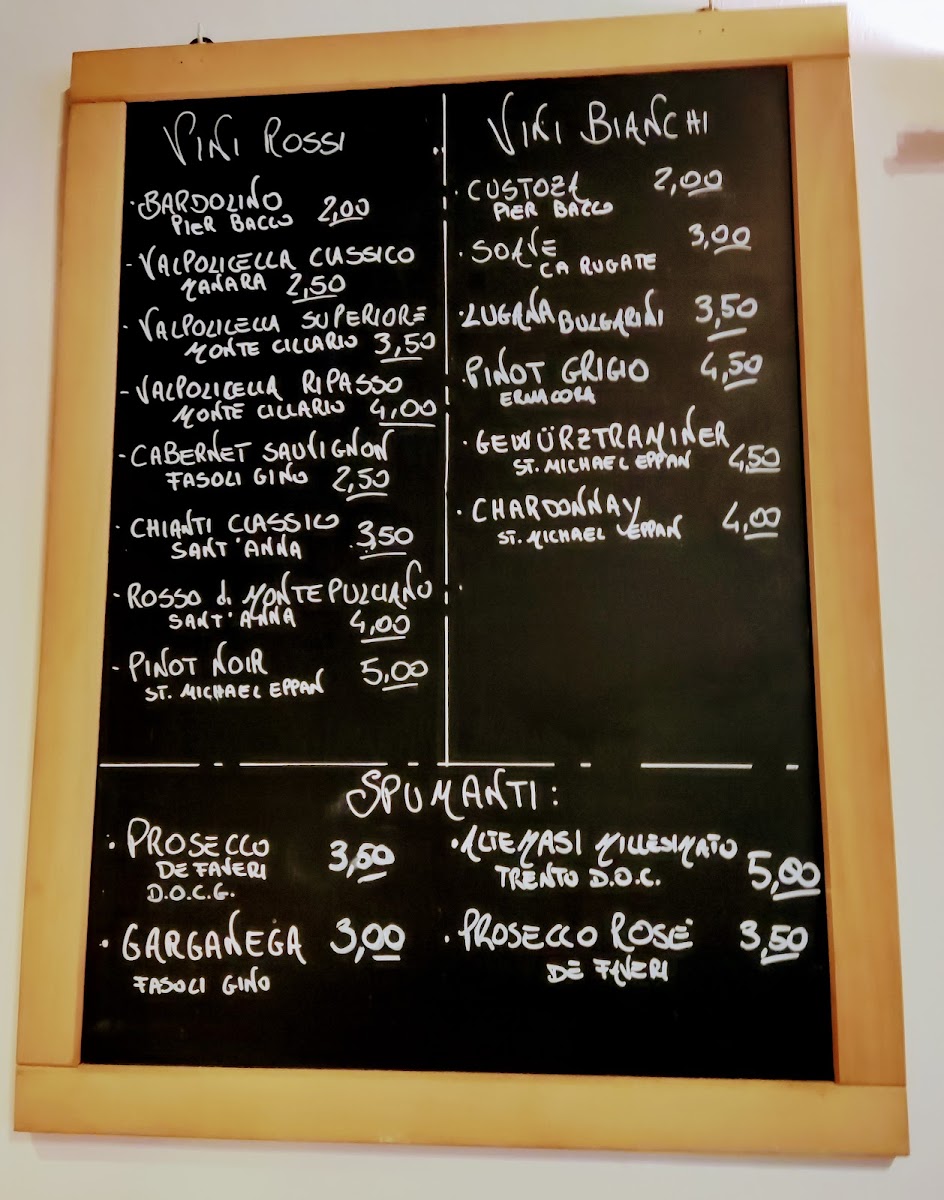 VINI ROSSI
• BARDOLINO
PIER BACCO 2,00
- VALPOLICELLA CLASSICO
MANARA 2,50
- VALPOLICELLA SUPERIORE
MONTE CILLARIO 3,50
- VALPOLICELLA RIPASSO
MONTE CILLARIO 4,00
- CABERNET SAUVIGNON
FASOLI GINO 2,50
- CHIANTI CLASSICO
SANT'ANNA 3,50
- ROSSO di MONTEPULCIANO
SANT'ANNA 4,00
- PINOT NOIR 5,00
ST. MICHAEL EPPAN
VINI BIANCHI
• CUSTOZA 2,00
PIER BACCO
• SOAVE 3,00
CA RUGATE
• LUGANA BULGARINI 3,50
• PINOT GRIGIO 4,50
ERMACORA
• GEWÜRZTRAMINER
ST. MICHAEL EPPAN 4,50
• CHARDONNAY 4,00
ST. MICHAEL EPPAN
SPUMANTI:
• PROSECCO 3,50
DE FAVERI
D.O.C.G.
• GARGANEGA 3,00
FASOLI GINO
• ALTEMASI MILLESIMATO
TRENTO D.O.C. 5,00
• PROSECCO ROSÈ 3,50
DE FAVERI